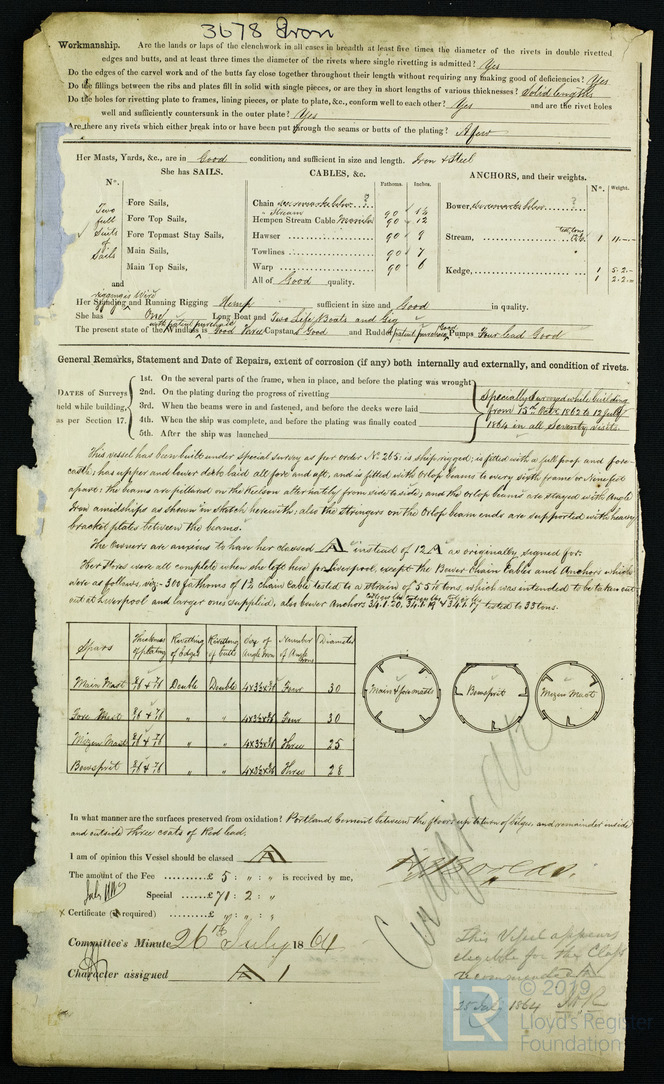 3678 Iron
Workmanship. Are the lands or laps of the clenchwork in all cases in breadth at least five times the diameter of the rivets in double rivetted
edges and butts, and at least three times the diameter of the rivets where single rivetting is admitted? Yes
Do the edges of the carvel work and of the butts fay close together throughout their length without requiring any making good of deficiencies? Yes
Do the fillings between the ribs and plates fill in solid with single pieces, or are they in short lengths of various thicknesses? Solid lengths
Do the holes for rivetting plate to frames, lining pieces, or plate to plate, &c., conform well to each other? Yes and are the rivet holes
well and sufficiently countersunk in the outer plate? Yes
Are there any rivets which either break into or have been put through the seams or butts of the plating? A few
Her Masts, Yards, &c., are in Good condition, and sufficient in size and length. Iron & Steel
She has SAILS. CABLES, &c. ANCHORS, and their weights.
Nº. Fathoms. Inches. Nº. Weight.
Two full Suits of Sails
Fore Sails, Chain see remarks below ?
Fore Top Sails, Hempen Stream Cable 90 12 Bower, see remarks below ?
Fore Topmast Stay Sails, Hawser 90 9 Stream, 1 11
Main Sails, Towlines 90 7
Main Top Sails, Warp 90 6 Kedge, 1 5.2
and All of Good quality. 1 2.2
rigging is Wire
Her Standing and Running Rigging Hemp sufficient in size and Good in quality.
She has One Long Boat and Two Life Boats and Gig
with patent purchase
The present state of the Windlass is Good Capstan Good and Rudder Good Pumps Four lead Good
General Remarks, Statement and Date of Repairs, extent of corrosion (if any) both internally and externally, and condition of rivets.
DATES of Surveys held while building, as per Section 17.
1st. On the several parts of the frame, when in place, and before the plating was wrought
2nd. On the plating during the progress of rivetting
3rd. When the beams were in and fastened, and before the decks were laid
4th. When the ship was complete, and before the plating was finally coated
5th. After the ship was launched
Specially surveyed while building
from 15th Octr 1862 to 12 July
1864 in all Seventy visits.
This vessel has been built under special survey as per order No. 265; is ship rigged; is fitted with a full poop and fore-
castle; has upper and lower decks laid all fore and aft, and is fitted with Orlop beams to every sixth frame or Nine feet
apart; the beams are pillared on the Kelson alternately from side to side, and the orlop beams are stayed with Angle
Iron amidships as shewn in Sketch herewith; also the stringers on the Orlop beam ends are supported with heavy
bracket plates between the beams.
The Owners are anxious to have her classed A instead of 12 A as originally signed for.
Her Stores were all complete when she left here for Liverpool, except the Bower Chain Cables and Anchors which
were as follows, viz:- 300 fathoms of 1 2 chain cable tested to a strain of 55 tons, which was intended to be taken out
at Liverpool and larger ones supplied, also bower Anchors 34.1.20, 34.1.19 & 34.1.17 tested to 33 tons.
Spars Thickness of plating Rivetting of Edges Rivetting of butts Size of Angle Iron Number of Angle Irons Diameter
Main Mast Double Double Four 30
Fore Mast " " Four 30
Mizen Mast " " Three 25
Bowsprit " " Three 28
Main & foremasts
Bowsprit
Mizen Mast
In what manner are the surfaces preserved from oxidation? Portland Cement between the floors up to turn of bilges, and remainder inside
and outside three coats of Red lead.
I am of opinion this Vessel should be classed A
The amount of the Fee £ 5 : " : " is received by me,
Special £ 71 : 2 : "
× Certificate (if required) £ " : " : "
Committee's Minute 26th July 1864
Character assigned A 1
This Vessel appears
eligible for the Class
recommended
25 July 1864
© 2019
LR
Lloyd's Register
Foundation